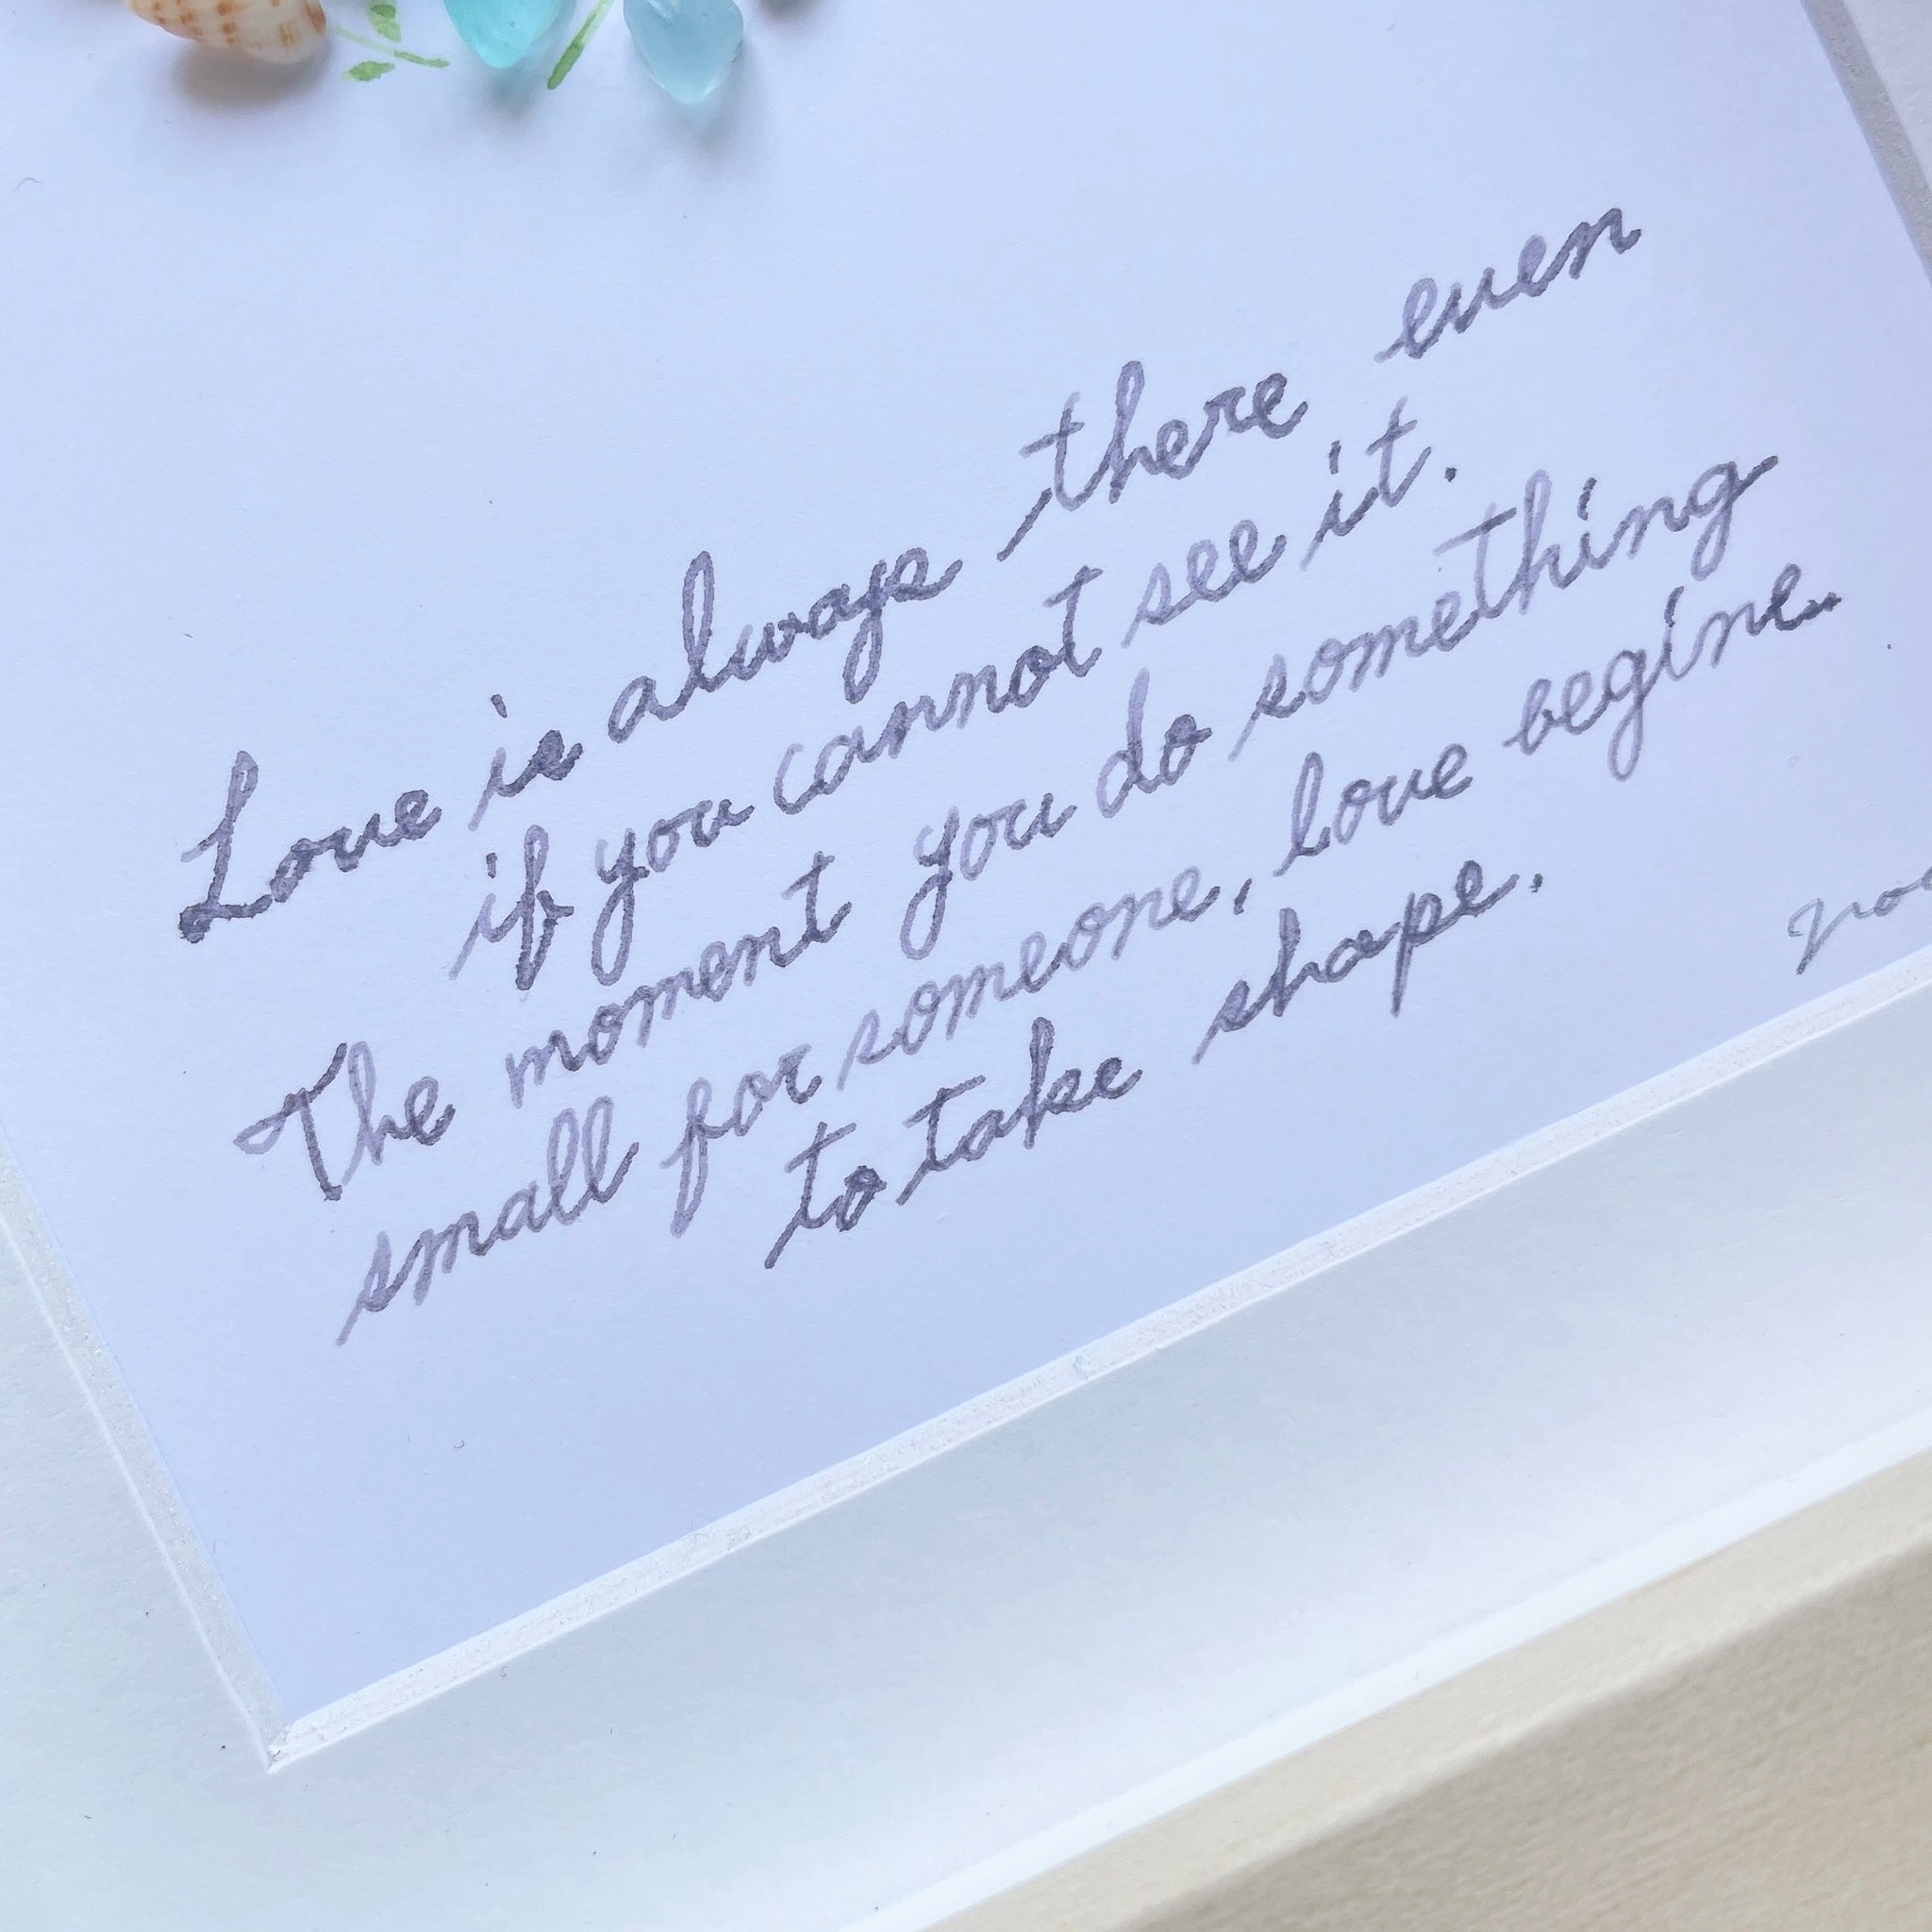 Love is always there even
if you cannot see it.
The moment you do something
small for someone, love begins
to take shape.